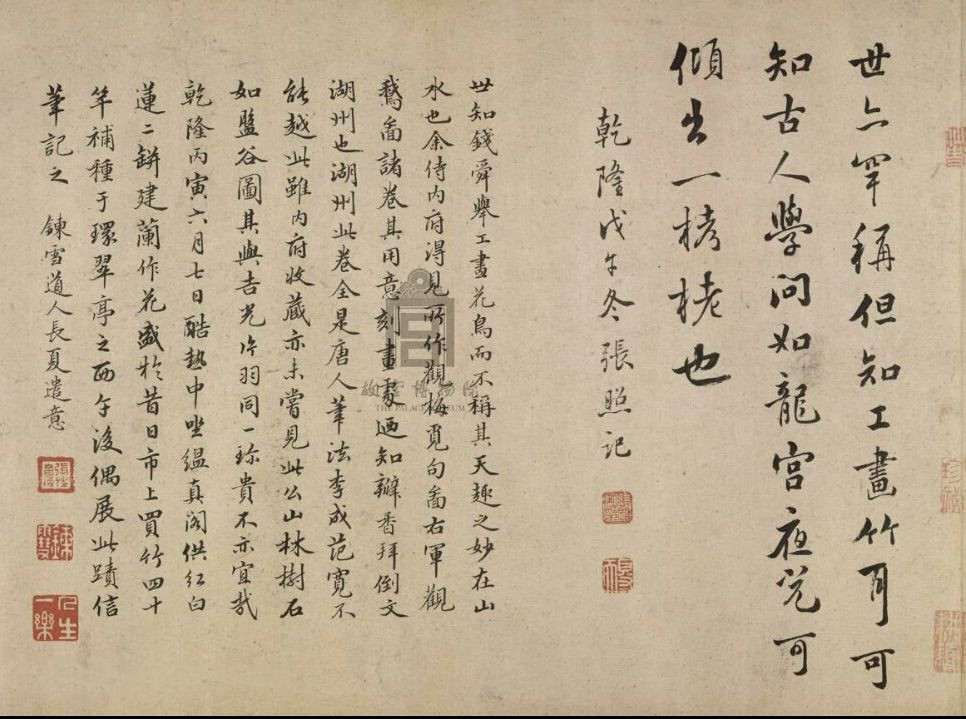 世亦罕稱但知工畫竹耳可
知古人學問如龍宮夜光可
傾出一栲栳也
乾隆戊午冬張照記
世知錢舜舉工畫花鳥而不稱其天趣之妙在山
水也余侍内府得見所作觀梅覓句啚右軍觀
鵝啚諸卷其用意刻畫處迺知瓣香拜倒文
湖州也湖州此卷全是唐人筆法李成范寬不
能越此雖内府收藏亦未嘗見此公山林樹石
如盤谷圖其與吉光片羽同一珍貴不亦宜哉
乾隆丙寅六月七日酷熱中坐緼真閣供紅白
蓮二缾建蘭作花盛於昔日市上買竹四十
竿補種于環翠亭之西午後偶展此蹟信
筆記之 鍊雪道人長夏遣意
人生一樂
故宮博物院
THE PALACE MUSEUM